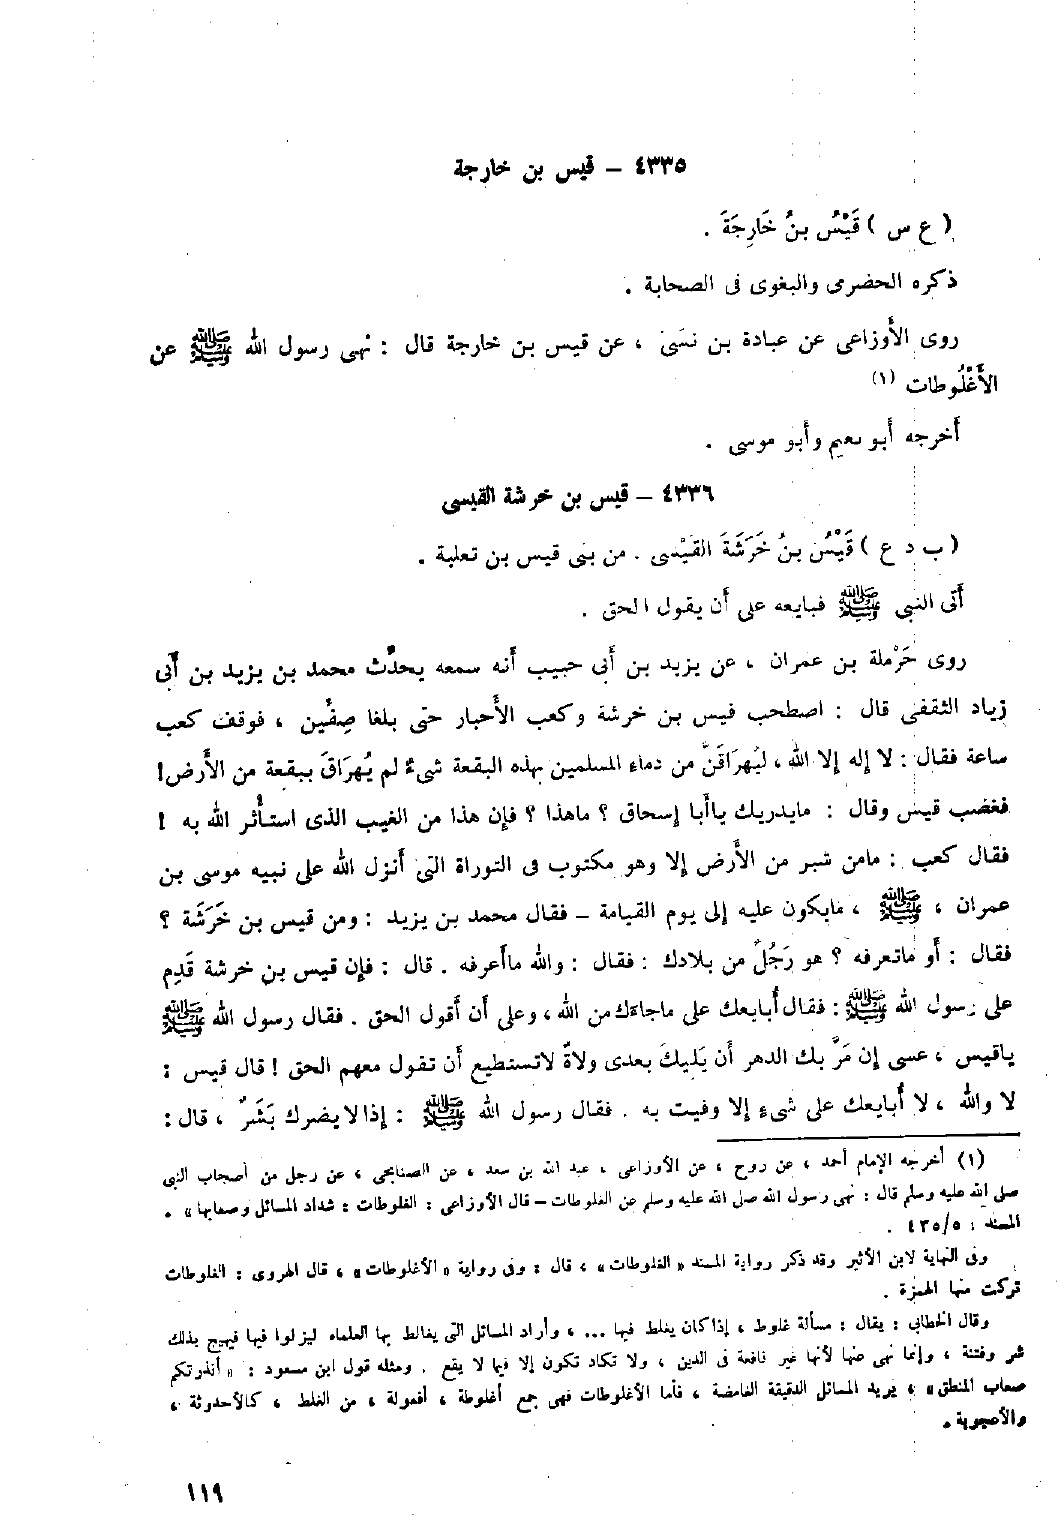 ٤٣٣٥ – قيس بن خارجة
( ع س ) قَيْسُ بنُ خَارِجَةَ .
ذكره الحضرمى والبغوى فى الصحابة .
روى الأوزاعى عن عبادة بن نسَىّ ، عن قيس بن خارجة قال : نهى رسول الله ﷺ عن
الأَغْلُوطات (١)
أخرجه أبو نعيم وأبو موسى .
٤٣٣٦ – قيس بن خرشة القيسى
( ب د ع ) قَيْسُ بنُ خَرَشَةَ القَيْسى . من بنى قيس بن ثعلبة .
أتى النبى ﷺ فبايعه على أن يقول الحق .
روى حَرْملة بن عمران ، عن يزيد بن أبى حبيب أنه سمعه يحدِّث محمد بن يزيد بن أبى
زياد الثقفى قال : اصطحب قيس بن خرشة وكعب الأحبار حتى بلغا صِفِّين ، فوقف كعب
ساعة فقال : لا إله إلا الله ، ليُهرَاقَنَّ من دماء المسلمين بهذه البقعة شىءٌ لم يُهرَاقَ ببقعة من الأرض!
فغضب قيس وقال : مايدريك ياأبا إسحاق ؟ ماهذا ؟ فإن هذا من الغيب الذى استأثر الله به !
فقال كعب : مامن شبر من الأرض إلا وهو مكتوب فى التوراة التى أنزل الله على نبيه موسى بن
عمران ، ﷺ ، مايكون عليه إلى يوم القيامة – فقال محمد بن يزيد : ومن قيس بن خَرَشَة ؟
فقال : أو ماتعرفه ؟ هو رَجُلٌ من بلادك : فقال : والله ماأعرفه . قال : فإن قيس بن خرشة قَدِم
على رسول الله ﷺ : فقال أُبايعك على ماجاءك من الله ، وعلى أن أقول الحق . فقال رسول الله ﷺ
ياقيس ، عسى إن مَرَّ بك الدهر أن يَليكَ بعدى ولاةٌ لاتستطيع أن تقول معهم الحق ! قال قيس :
لا والله ، لا أُبايعك على شىءٍ إلا وفيت به . فقال رسول الله ﷺ : إذا لا يضرك بَشَرٌ ، قال :
(١) أخرجه الإمام أحمد ، عن روح ، عن الأوزاعى ، عبد الله بن سعد ، عن الصنابحى ، عن رجل من أصحاب النبى
صلى الله عليه وسلم قال : نهى رسول الله صلى الله عليه وسلم عن الغلوطات – قال الأوزاعى : الغلوطات : شداد المسائل وصعابها » .
المسند : ٥/٤٣٥ .
وفى النهاية لابن الأثير وقد ذكر رواية المسند « الغلوطات » ، قال : وفى رواية « الأغلوطات » ، قال الهروى : الغلوطات
تركت منها الهمزة .
وقال الخطابى : يقال : مسألة غلوط ، إذا كان يغلط فيها ... ، وأراد المسائل التى يغالط بها العلماء ليزلوا فيها فيهيج بذلك
شر وفتنة ، وإنما نهى عنها لأنها غير نافعة فى الدين ، ولا تكاد تكون إلا فيما لا يقع . ومثله قول ابن مسعود : « أنذرتكم
صعاب المنطق » ، يريد المسائل الدقيقة الغامضة ، فأما الأغلوطات فهى جمع أغلوطة ، أفعولة ، من الغلط ، كالأحدوثة ،
والأعجوبة .
١١٩